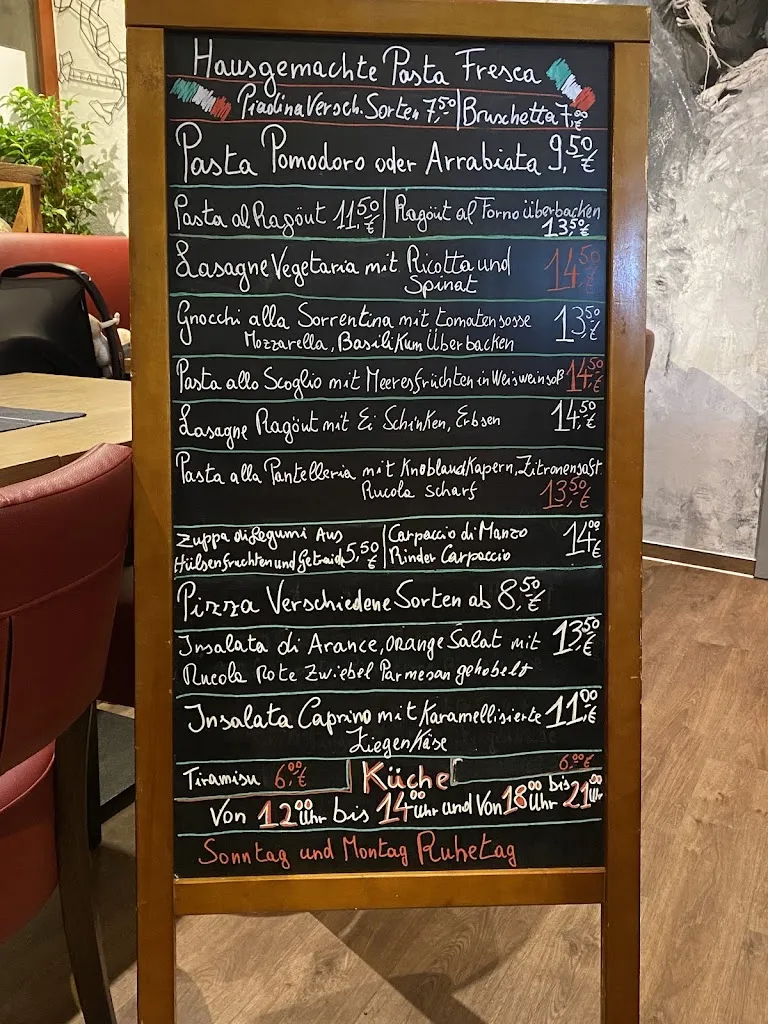 Hausgemachte Pasta Fresca
Piadina Versch. Sorten 7,50 | Bruschetta 7,00 €
Pasta Pomodoro oder Arrabiata 9,50 €
Pasta al Ragöut 11,50 € | Ragöut al Forno überbacken
13,50 €
Lasagne Vegetaria mit Ricotta und 14,50 €
Spinat
Gnocchi alla Sorrentina mit tomatensosse 13,50 €
Mozzarella, Basilikum Überbacken
Pasta allo Scoglio mit Meeresfrüchten in Weisweinsoß 14,50 €
Lasagne Ragöut mit Ei Schinken, Erbsen 14,50 €
Pasta alla Pantelleria mit Knoblaud Kapern, Zitronensaft
Rucola scharf 13,50 €
Zuppa di Legumi Aus | Carpaccio di Manzo 14,00 €
Hülsenfruchten und Getraide 5,50 € | Rinder Carpaccio
Pizza Verschiedene Sorten ab 8,50 €
Insalata di Arance, Orange Salat mit 13,50 €
Rucola Rote Zwiebel Parmesan gehobelt
Insalata Caprino mit Karamellisierte 11,00 €
Ziegenkäse
Tiramisu 6,00 € Küche 6,00 €
Von 12 00 Uhr bis 14 00 Uhr und Von 18 00 Uhr bis 21 00 Uhr
Sonntag und Montag Ruhetag